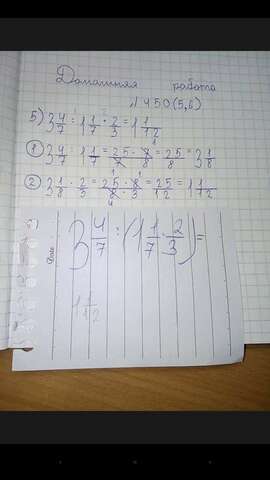 Домашняя работа
4450(5,6)
5) 3 4/7 : 1 1/7 · 2/3 = 1 1/12
① 3 4/7 : 1 1/7 = 25/7 · 7/8 = 25/8 = 3 1/8
② 3 1/8 · 2/3 = 25/8 · 2/3 = 25/12 = 1 1/12
3 4/7 : (1 1/7 · 2/3) =